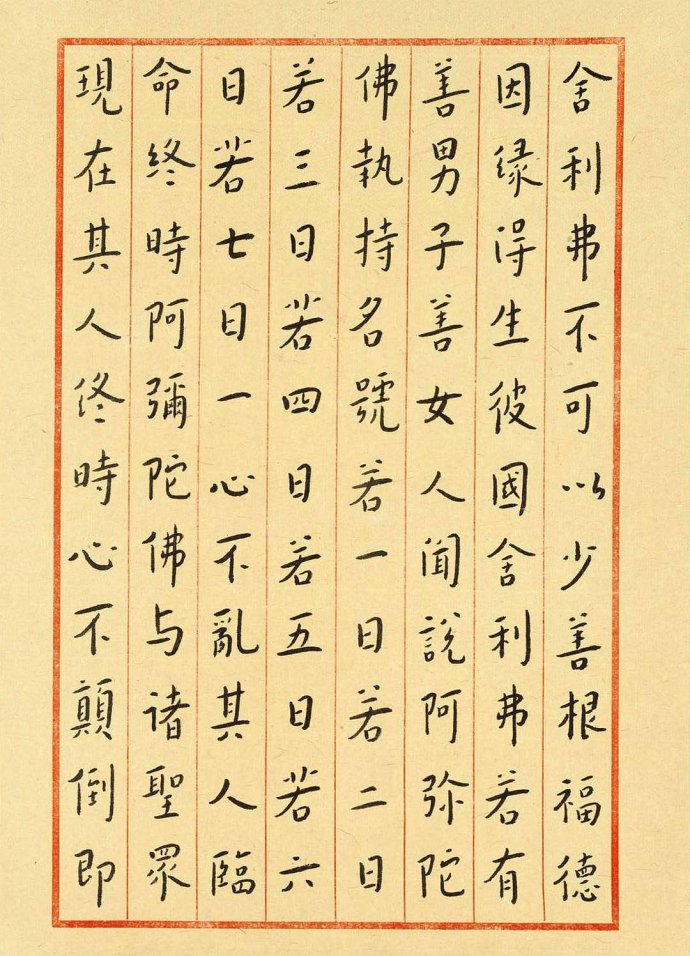 舍利弗不可以少善根福德
因缘得生彼國舍利弗若有
善男子善女人聞說阿弥陀
佛執持名號若一日若二日
若三日若四日若五日若六
日若七日一心不亂其人臨
命終時阿彌陀佛与诸聖眾
現在其人终時心不顛倒即